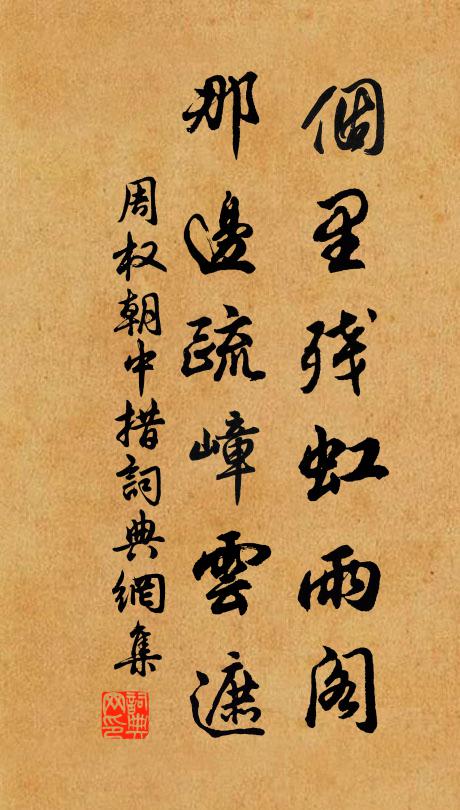 個里残虹雨阁
那邊疏嶂雲遮
周权朝中措詞典網集
詞典
网印